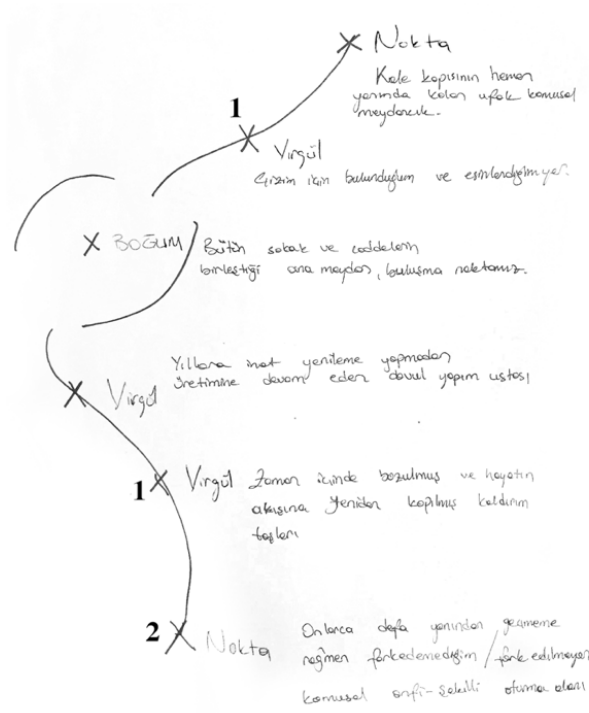 Nokta
Kale kapısının hemen
yanında kalan ufak kamusal
meydancık.
1
Virgül
Çizim için bulunduğum ve esinlendiğim yer.
BOĞUM
Bütün sokak ve caddelerin
birleştiği ana meydan, buluşma noktamız.
Yıllara inat yenileme yapmadan
Virgül üretimine devam eden davul yapım ustası
1 Virgül Zaman içinde bozulmuş ve hayatın
akışına yeniden kapılmış kaldırım
taşları
2 Nokta Onlarca defa yanından geçmeme
rağmen farkedemediğim / fark edilmeyen
kamusal sekilli oturma alanı